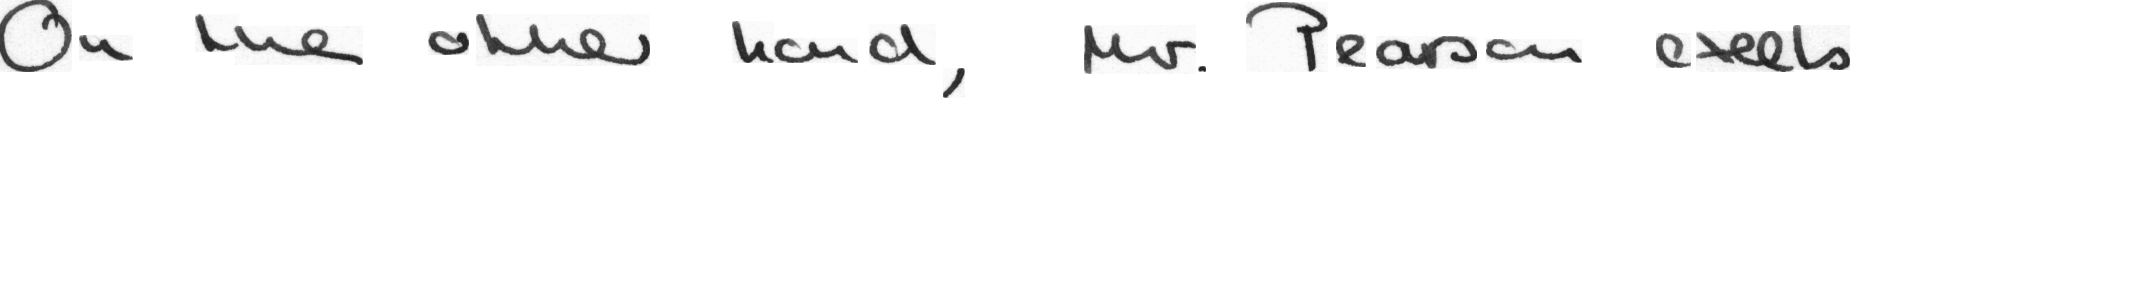 On the other hand, Mr. Pearson excels